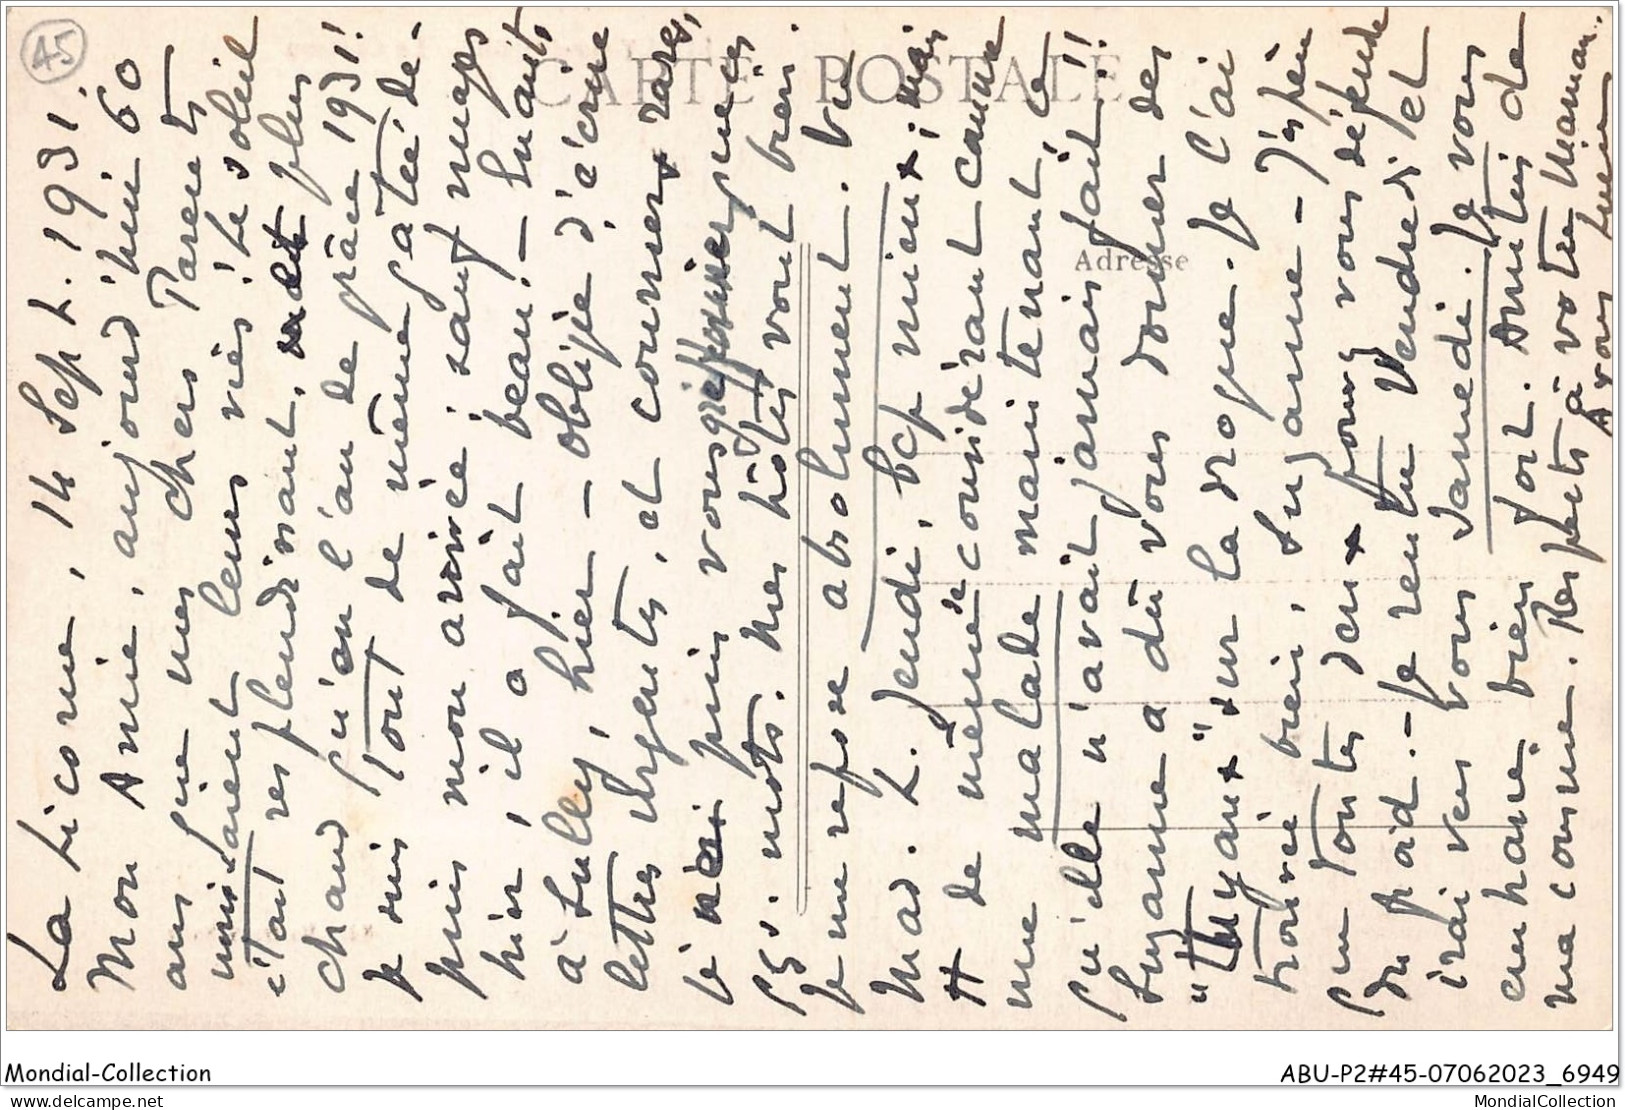 45
CARTE POSTALE
Adresse
La Licorne, 14 Sept. 1931.
Mon Amie, aujourd'hui 60
ans que mes chers Parents
unissaient leurs vies! Le soleil
était resplendissant, plus
chaud qu'en l'an de grâce 1931!
Je suis tout de même gâtée de-
puis mon arrivée; sauf nuages
hier, il a fait beau! –
à Sully, hier – obligée d'écrire
lettres urgentes, et courrier rares,
je puis vous griffonner ques
qs. mots. Mes hôtes vont bien.
Je me refuse absolument. Vu
Mad. L. Jeudi, bcp mieux; mais
de même considérant comme
une malade maintenant, ce
qu'elle n'avait jamais fait!!
Suzanne a dû vous donner des
"tuyaux" sur la drogue. Je l'ai
trouvée bien, Suzanne – J'espère
qu toutes deux vous
du froid. – Je rentre Vendredi et
irai vers vous Samedi. Je vous
embrasse bien fort. Amitiés de
ma cousine. Respects à votre Maman...
A vous
Mondial-Collection
ABU-P2#45-07062023_6949
www.delcampe.net
MondialCollection